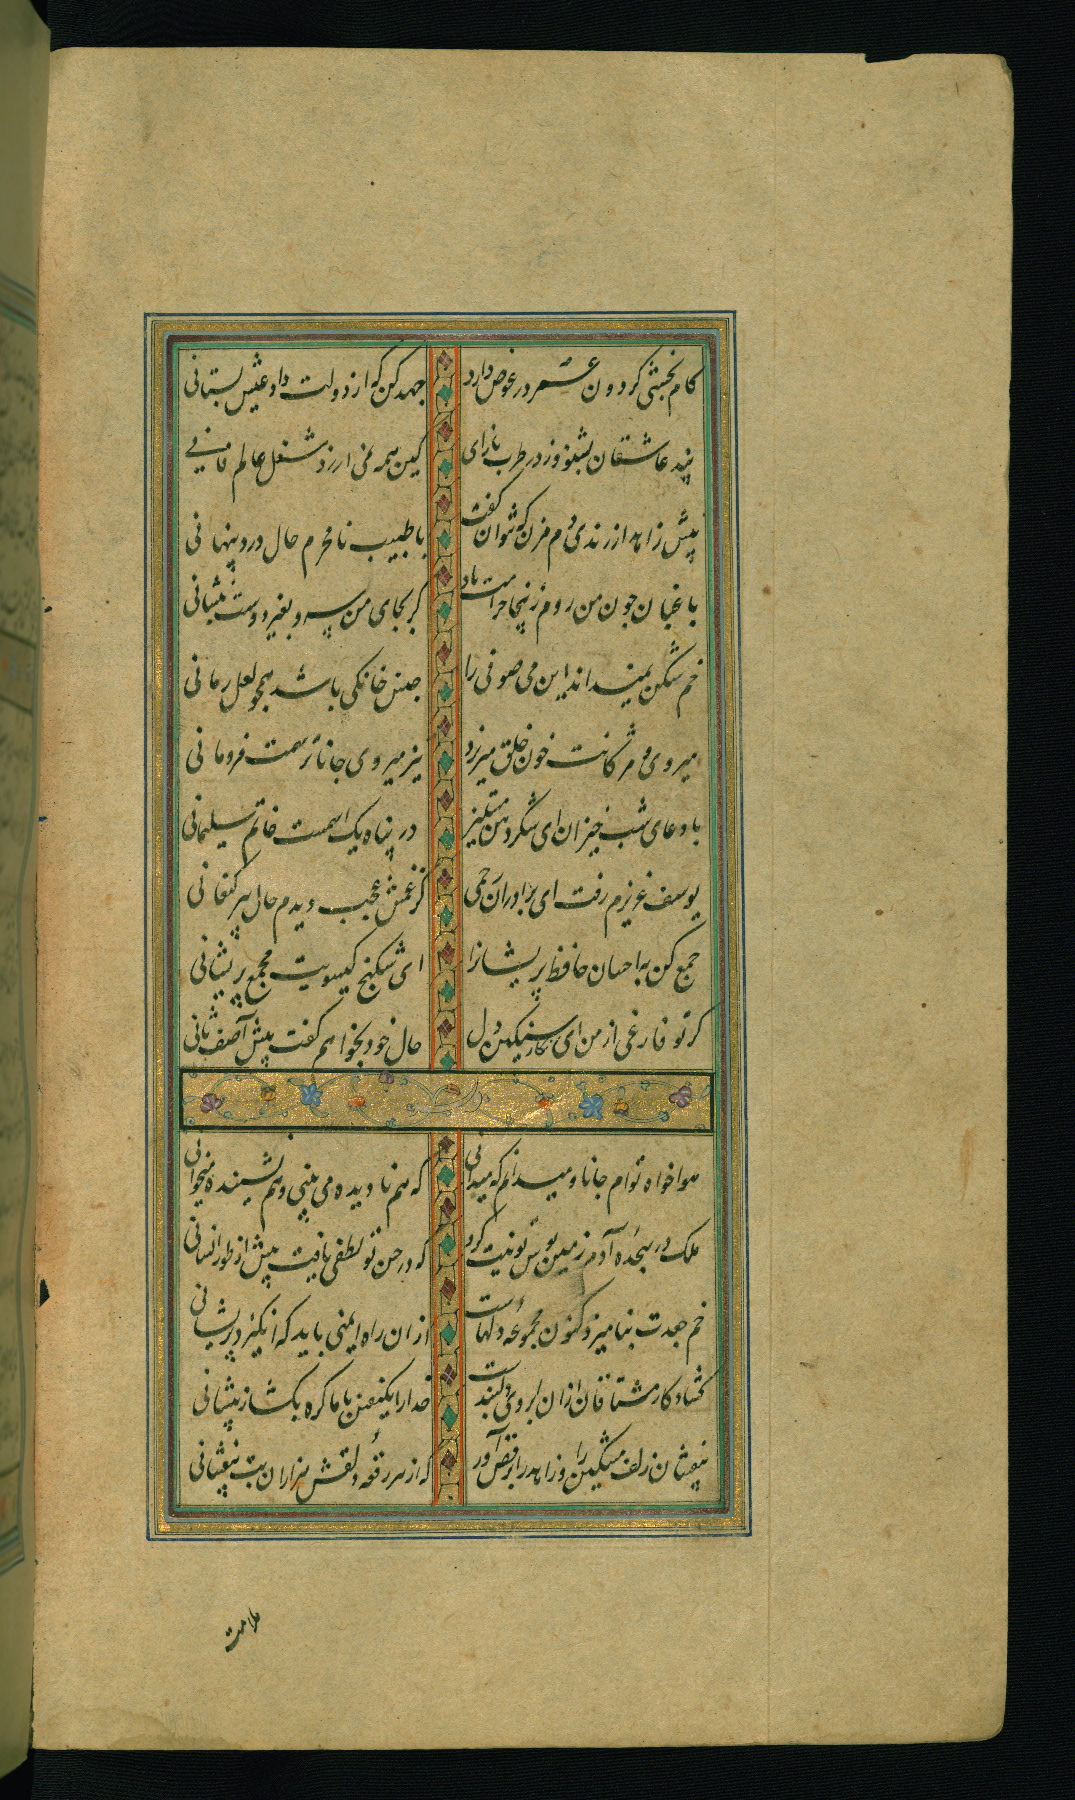 کام بخشی کردون عمر در عوض دارد جهد کن که از دولت داد عیش بستانی
پند عاشقان بشنو وز در طرب بازای کین همه نمی ارزد شغل عالم فانی
پیش زاهد از رندی دم مزن که نتوان گفت با طبیب نامحرم حال درد پنهانی
باغبان چون من زینجا روم حرامت باد کر بجای من سرو بغیر دوست بنشانی
خم شکن نمیداند این می صوفی را جنس خانکی باشد همچو لعل رمانی
میروی و مژکانت خون خلق میریزد تیز میروی جانا ترسمت فرومانی
با دعای شب خیزان ای شکردهن مستیز در پناه یک اسمست خاتم سلیمانی
یوسف عزیزم رفت ای برادران رحمی کز غمش عجب دیدم حال پیر کنعانی
جمع کن به احسان حافظ پریشانرا ای شکنج کیسویت مجمع پریشانی
کر تو فارغی از من ای نکار سنکین دل حال خود بخواهم کفت پیش آصف ثانی
هواخواه توام جانا و میدانم که میدانی که هم نادیده می بینی و هم ننوشته میخوانی
ملک در سجدهٔ آدم زمین بوس تو نیت کرد که در حسن تو لطفی یافت بیش از طور انسانی
خم جعدت بنامیزد کنون مجموعهٔ دلهاست از ان راه ایمنی باید که انکیزد پریشانی
کشاد کار مشتاقان از ان ابروی دلبندست خدا را یکنفس با ما کره بکشا ز پیشانی
بیفشان زلف مشکین را و زاهد را برقص آور که از هر رقعهٔ دلقش هزاران بت بیفشانی
ملامت